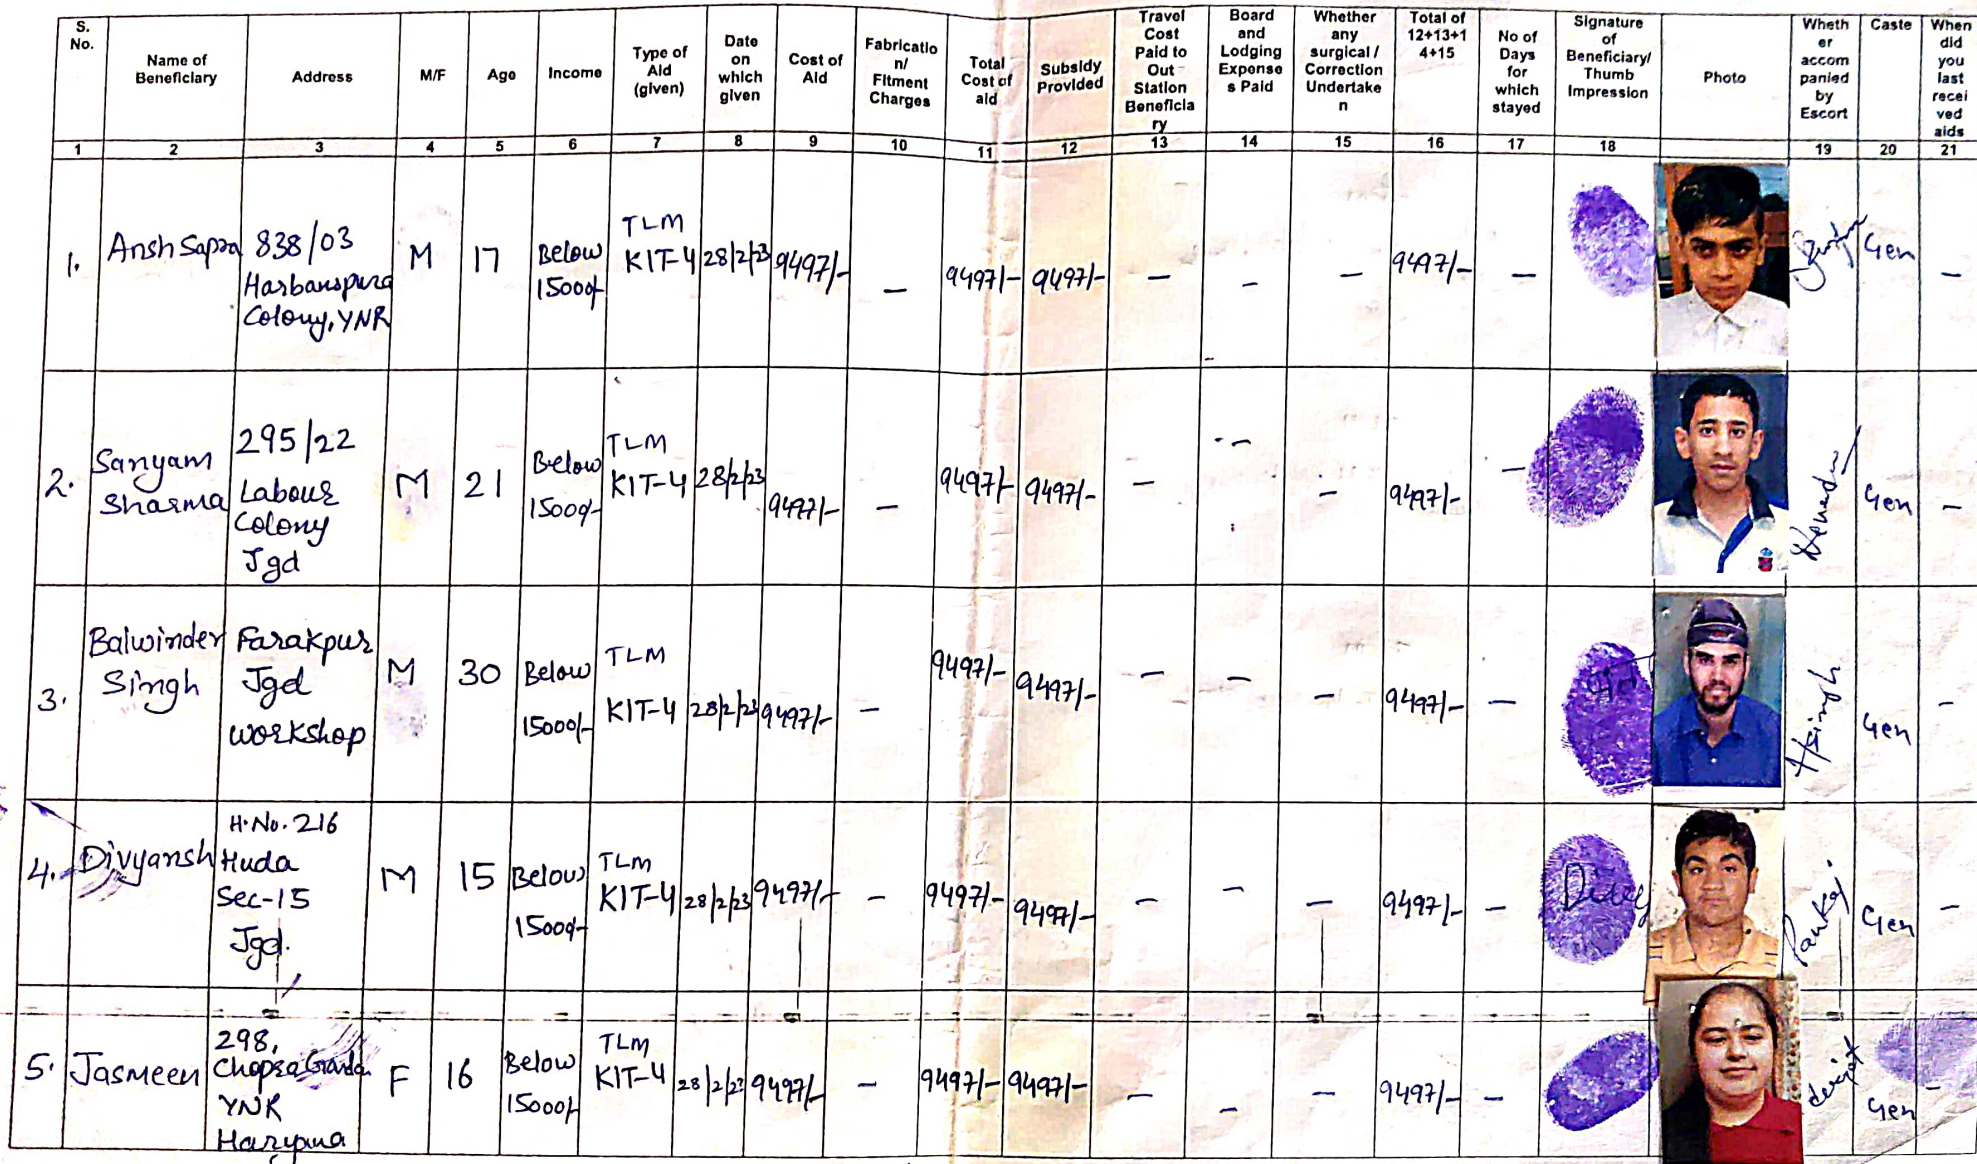 S. No.
Name of Beneficiary
Address
M/F
Age
Income
Type of Aid (given)
Date on which given
Cost of Aid
Fabricatio n/ Fitment Charges
Total Cost of aid
Subsidy Provided
Travel Cost Paid to Out Station Beneficia ry
Board and Lodging Expense s Paid
Whether any surgical / Correction Undertake n
Total of 12+13+1 4+15
No of Days for which stayed
Signature of Beneficiary/ Thumb Impression
Photo
Wheth er accom panied by Escort
Caste
When did you last recei ved aids
1 2 3 4 5 6 7 8 9 10 11 12 13 14 15 16 17 18 19 20 21
1. Ansh Sapra 838/03 Harbanspura Colony, YNR M 17 Below 15000/- TLM KIT-4 28/2/23 9497/- – 9497/- 9497/- – – – 9497/- – Gen –
2. Sanyam Sharma 295/22 Labour Colony Jgd M 21 Below 15000/- TLM KIT-4 28/2/23 9497/- – 9497/- 9497/- – – – 9497/- – Gen –
3. Balwinder Singh Farakpur Jgd workshop M 30 Below 15000/- TLM KIT-4 28/2/23 9497/- – 9497/- 9497/- – – – 9497/- – Hsingh Gen –
4. Divyansh H.No. 216 Huda Sec-15 Jgd. M 15 Below 15000/- TLM KIT-4 28/2/23 9497/- – 9497/- 9497/- – – – 9497/- – Pankaj Gen –
5. Jasmeen 298, Chopra Garden YNR Haryana F 16 Below 15000/- TLM KIT-4 28/2/23 9497/- – 9497/- 9497/- – – – 9497/- – Gen –